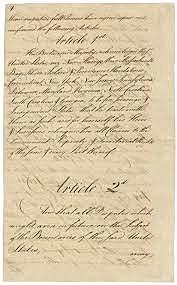 respective full Powers have agreed upon and
confirmed the following Articles.
Article 1st
His Britannic Majesty acknowledges the said
United States, viz. New Hampshire, Massachusetts
Bay, Rhode Island & Providence Plantations,
Connecticut, New York, New Jersey, Pennsylvania,
Delaware, Maryland, Virginia, North Carolina,
South Carolina & Georgia, to be free sovereign &
Independent States; that he treats with
them as such, and for himself his Heirs
& Successors, relinquishes all Claims to the
Government, Propriety & Territorial Rights
of the same & every Part thereof.
Article 2d
And that all Disputes which
might arise in future on the Subject
of the Boundaries of the said United
States,
may